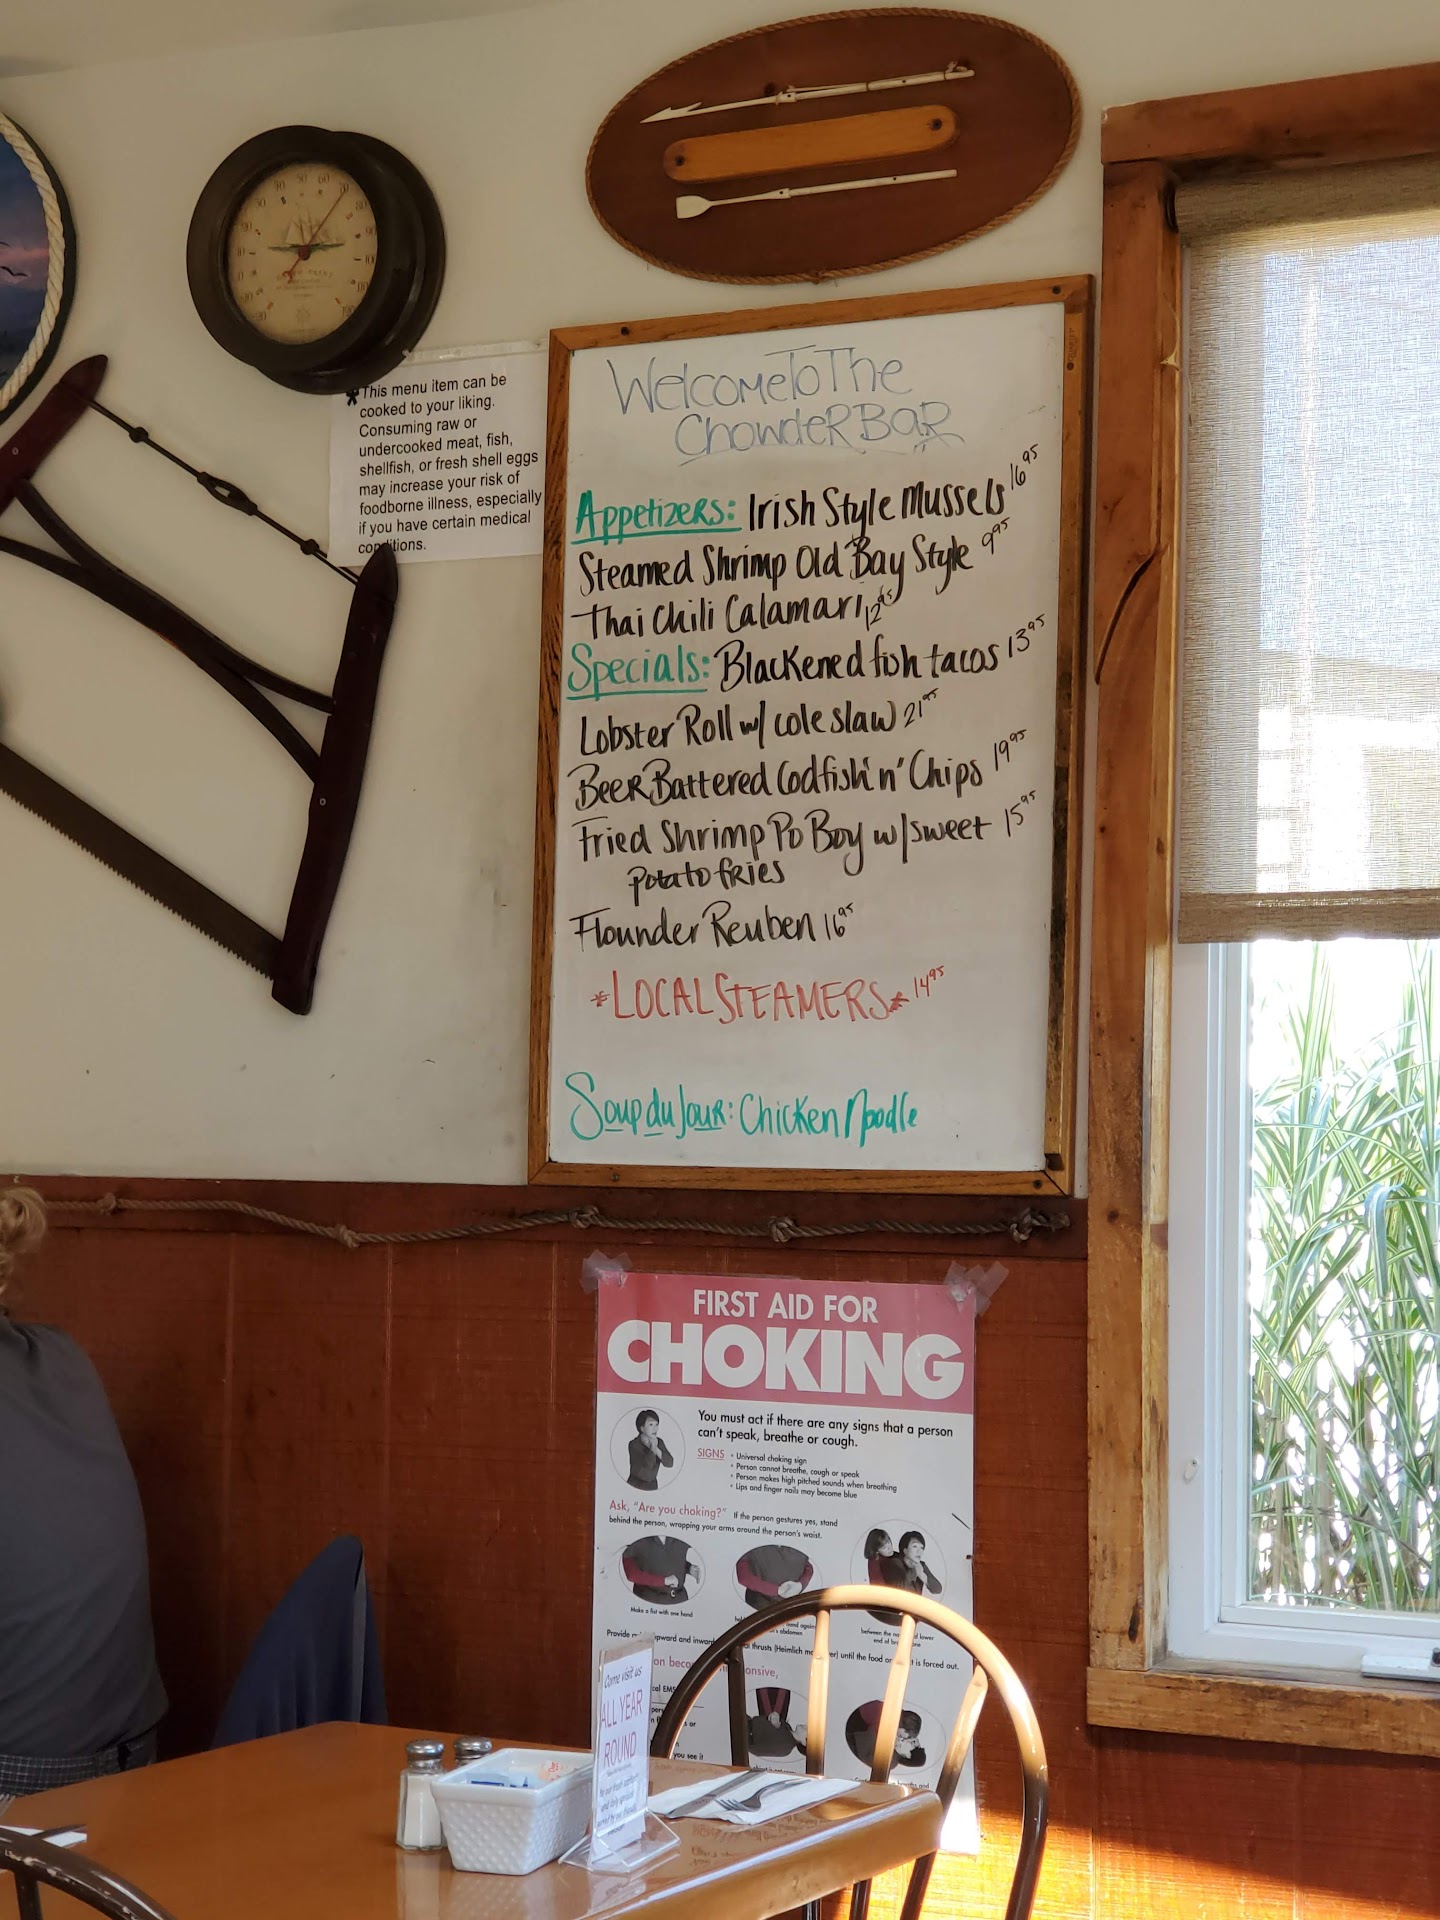 *This menu item can be
cooked to your liking.
Consuming raw or
undercooked meat, fish,
shellfish, or fresh shell eggs
may increase your risk of
foodborne illness, especially
if you have certain medical
conditions.
Welcome To The
Chowder Bar
Appetizers: Irish Style Mussels 16.95
Steamed Shrimp Old Bay Style 9.95
Thai Chili Calamari 12.95
Specials: Blackened fish tacos 13.95
Lobster Roll w/ cole slaw 21.95
Beer Battered Codfish 'n' Chips 19.95
Fried Shrimp Po Boy w/ sweet 15.95
potato fries
Flounder Reuben 16.95
*LOCAL STEAMERS* 14.95
Soup du Jour: Chicken Noodle
FIRST AID FOR
CHOKING
You must act if there are any signs that a person
can't speak, breathe or cough.
SIGNS
• Universal choking sign
• Person cannot breathe, cough or speak
• Person makes high pitched sounds when breathing
• Lips and finger nails may become blue
Ask, "Are you choking?" If the person gestures yes, stand
behind the person, wrapping your arms around the person's waist.
Make a fist with one hand
between the
lower
end of
Provide
upward and
thrusts (Heimlich
until the food
is forced out.
you see it
Come visit us
ALL YEAR
ROUND